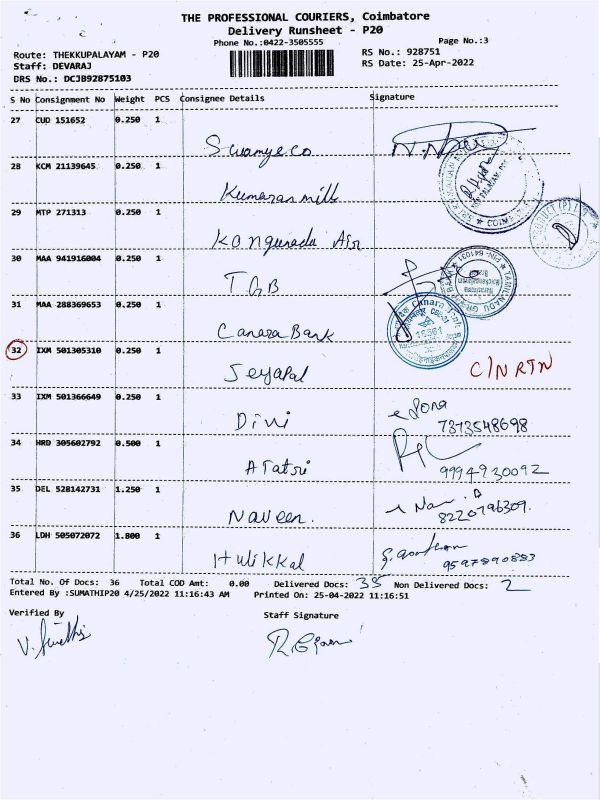 THE PROFESSIONAL COURIERS, Coimbatore
Delivery Runsheet - P20
Phone No.:0422-3505555
Page No.:3
Route: THEKKUPALAYAM - P20
RS No.: 928751
Staff: DEVARAJ
RS Date: 25-Apr-2022
DRS No.: DCJB92875103
S No Consignment No Weight PCS Consignee Details Signature
27 CUD 151652 0.250 1
Swamy&co
28 KCM 21139645 0.250 1
Kumaran mill
29 MTP 271313 0.250 1
Kongunadu Air
30 MAA 941916004 0.250 1
TGB
31 MAA 288369653 0.250 1
Canara Bank
32 IXM 501305310 0.250 1
Jeyapal C/N RTN
33 IXM 501366649 0.250 1
Divi
7373548698
34 HRD 305602792 0.500 1
9994930092
35 DEL 528142731 1.250 1
Naveen.
8220796309.
36 LDH 505072072 1.800 1
Hulikkal
9597890883
Total No. Of Docs: 36 Total COD Amt: 0.00 Delivered Docs: 35 Non Delivered Docs: 2
Entered By :SUMATHIP20 4/25/2022 11:16:43 AM Printed On: 25-04-2022 11:16:51
Verified By Staff Signature